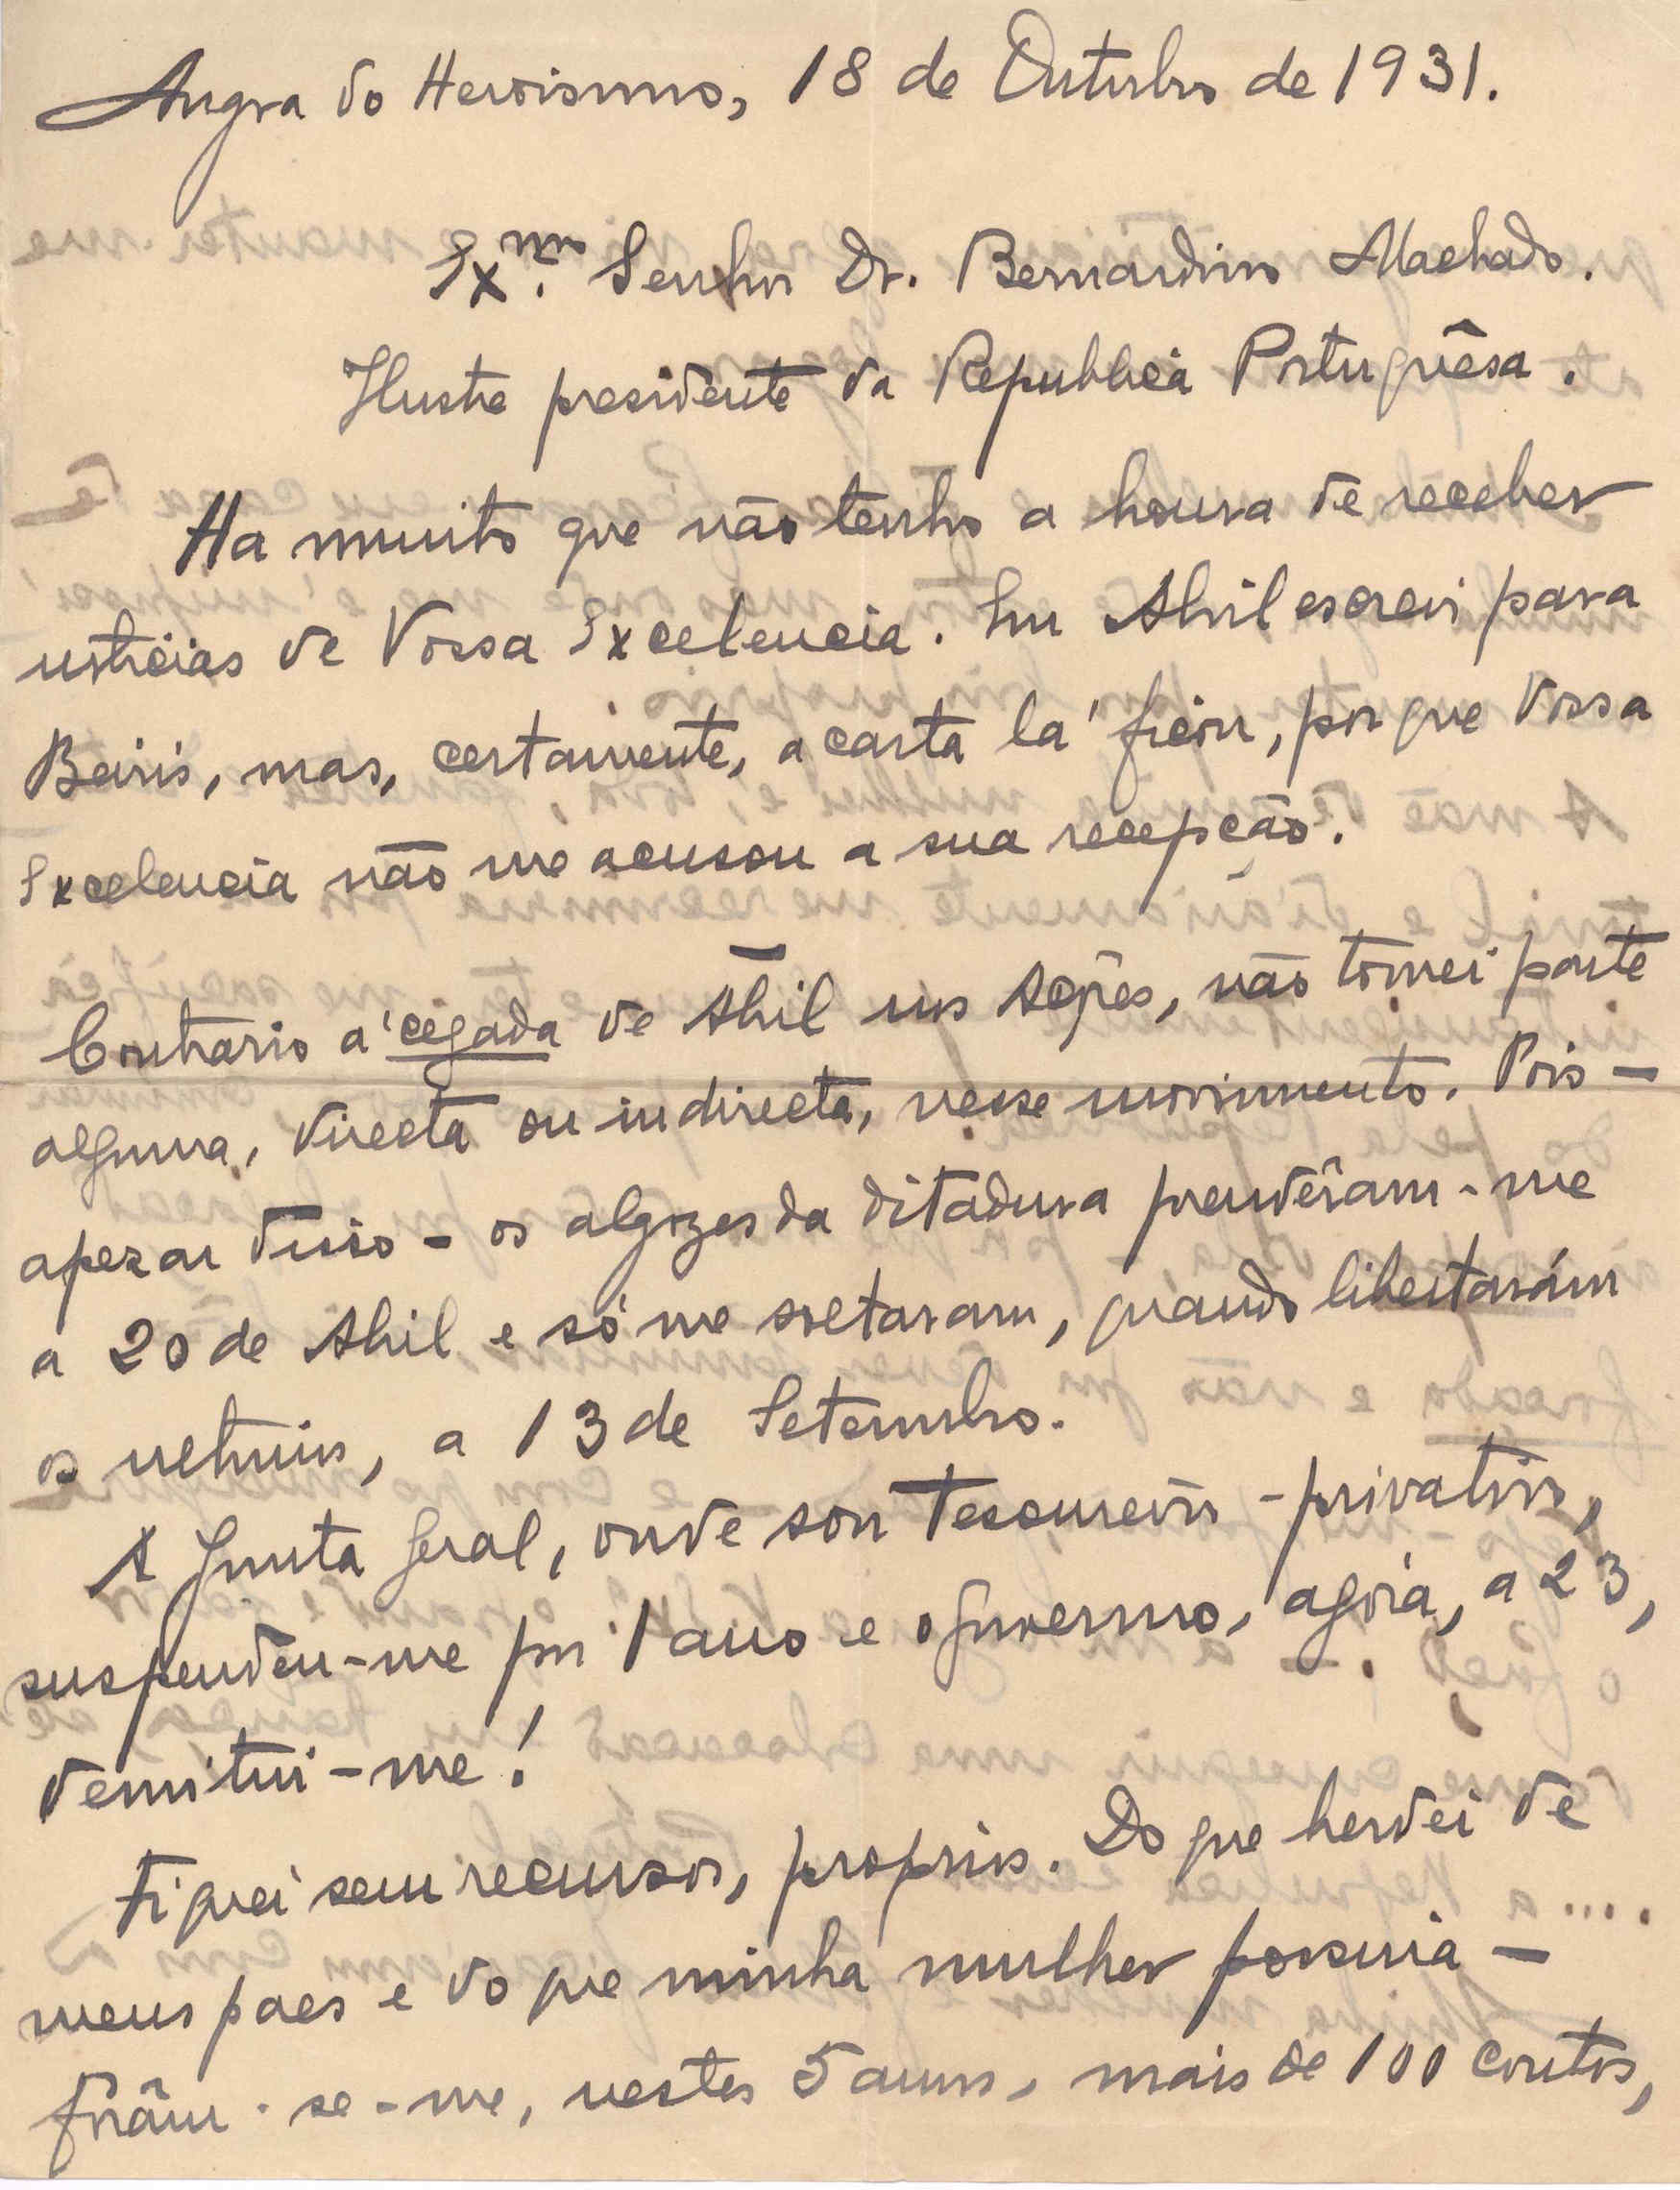 Angra do Heroismo, 18 de Outubro de 1931.
Exmo. Senhor Dr. Bernardino Machado.
Ilustre presidente da Republica Portuguêsa.
Ha muito que não tenho a honra de receber
noticias de Vossa Excelencia. Em Abril escrevi para
Beiris, mas, certamente, a carta la' ficou, por que Vossa
Excelencia não me acusou a sua recepcão.
Contrario a' cegada de Abril nos Açôres, não tomei parte
alguma, directa ou indirecta, nesse movimento. Pois -
apezar disso - os algozes da ditadura prendêram-me
a 20 de Abril e só me soltaram, quando libertarám
os ultimos, a 13 de Setembro.
A Junta Geral, onde sou tesoureiro - privativo,
suspendeu-me por 1 ano e o governo, agora, a 23,
demitiu-me!
Fiquei sem recursos, proprios. Do que herdei de
meus paes e do que minha mulher possuia -
forâm-se-me, nestes 5 anos, mais de 100 contos,